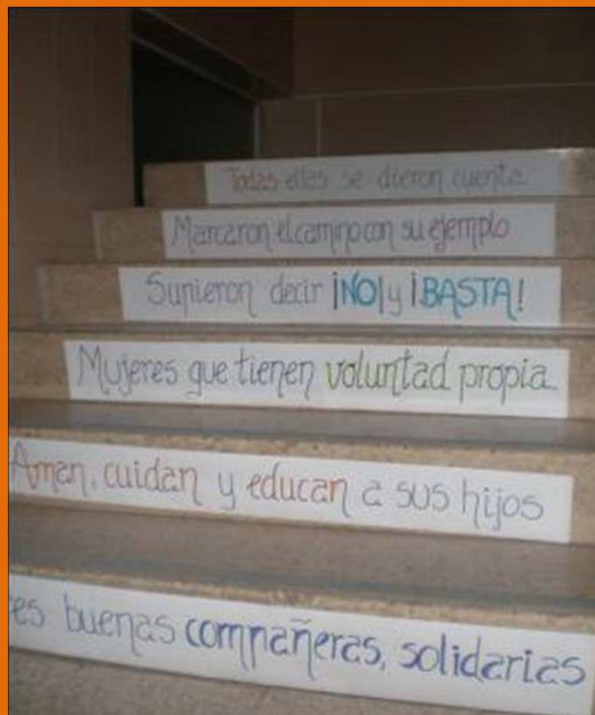 Todas ellas se dieron cuenta
Marcaron el camino con su ejemplo
Supieron decir ¡NO! y ¡BASTA!
Mujeres que tienen voluntad propia.
Aman, cuidan y educan a sus hijos
buenas compañeras, solidarias